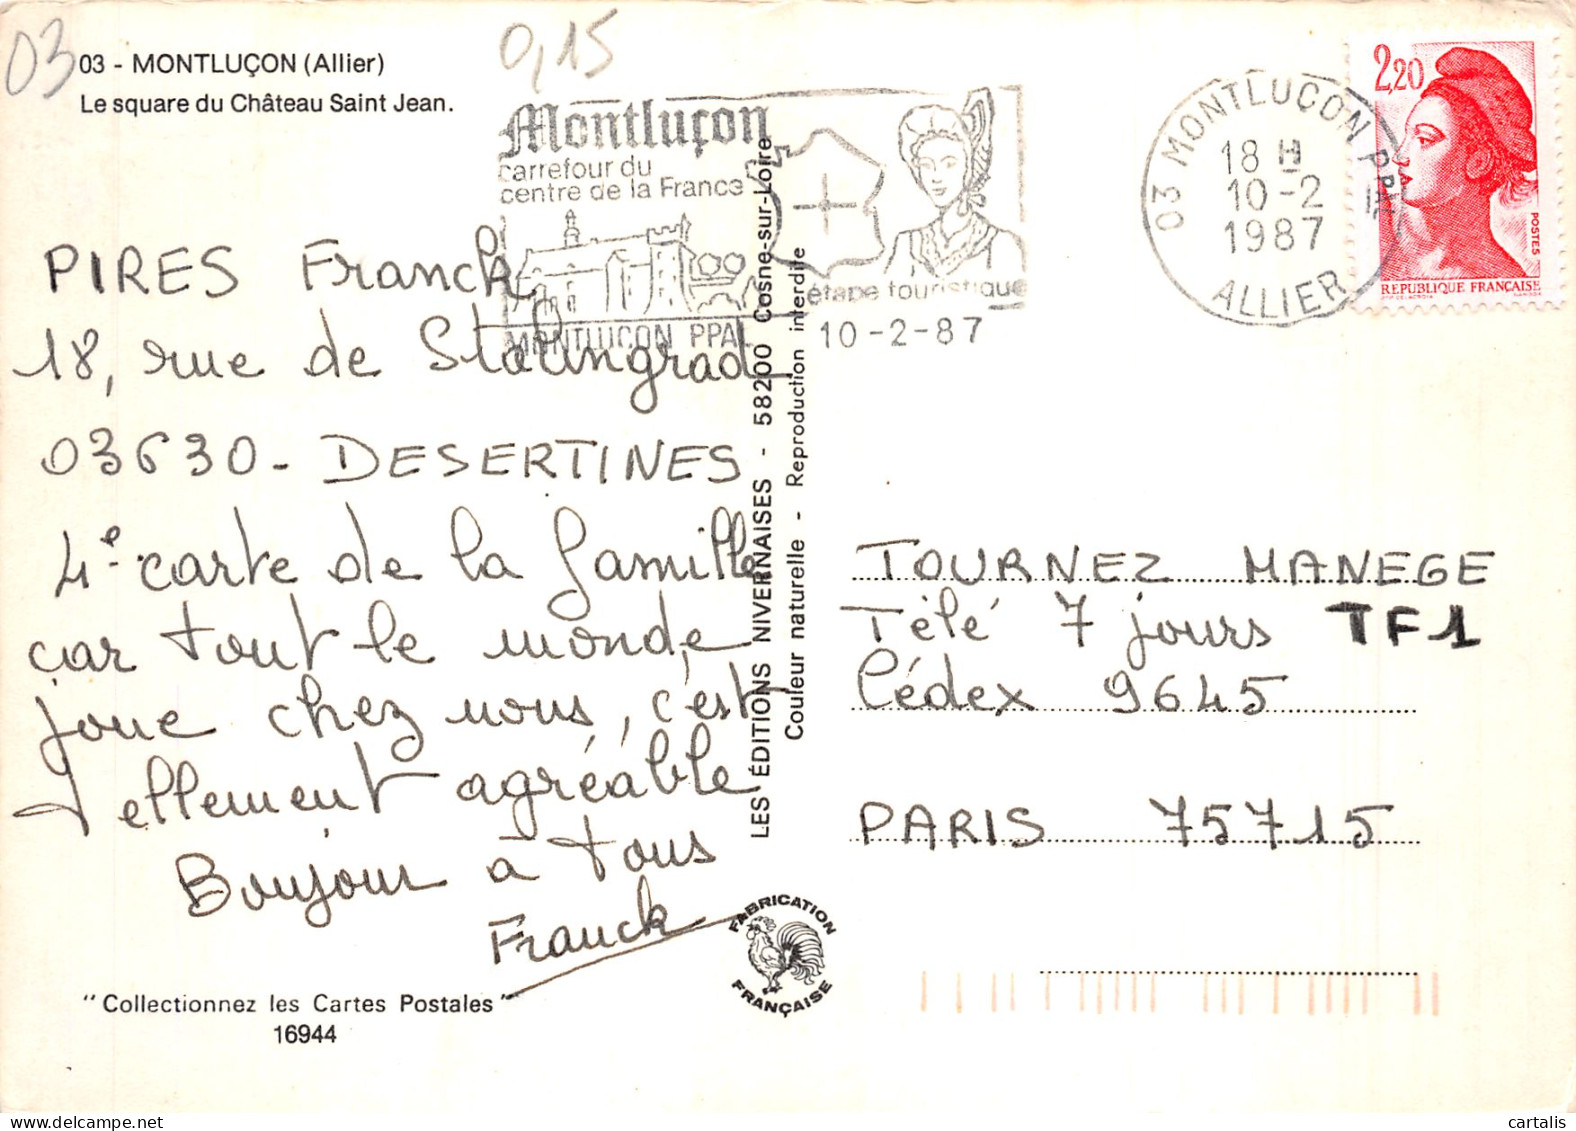 03
0,15
03 - MONTLUÇON (Allier)
Le square du Château Saint Jean.
Montluçon
carrefour du
centre de la France
étape touristique
MONTLUCON PPAL
10-2-87
03 MONTLUCON PPAL
18 H
10-2
1987
ALLIER
2,20
POSTES
REPUBLIQUE FRANÇAISE
PIRES Franck
18, rue de Stalingrad
03630 - DESERTINES
4e carte de la famille
car tout le monde
joue chez nous, c'est
tellement agréable
Bonjour à tous
Franck
"Collectionnez les Cartes Postales"
16944
LES ÉDITIONS NIVERNAISES - 58200 Cosne-sur-Loire
Couleur naturelle - Reproduction interdite
FABRICATION
FRANÇAISE
TOURNEZ MANEGE
Télé 7 jours TF1
Cédex 9645
PARIS 75715
cartalis